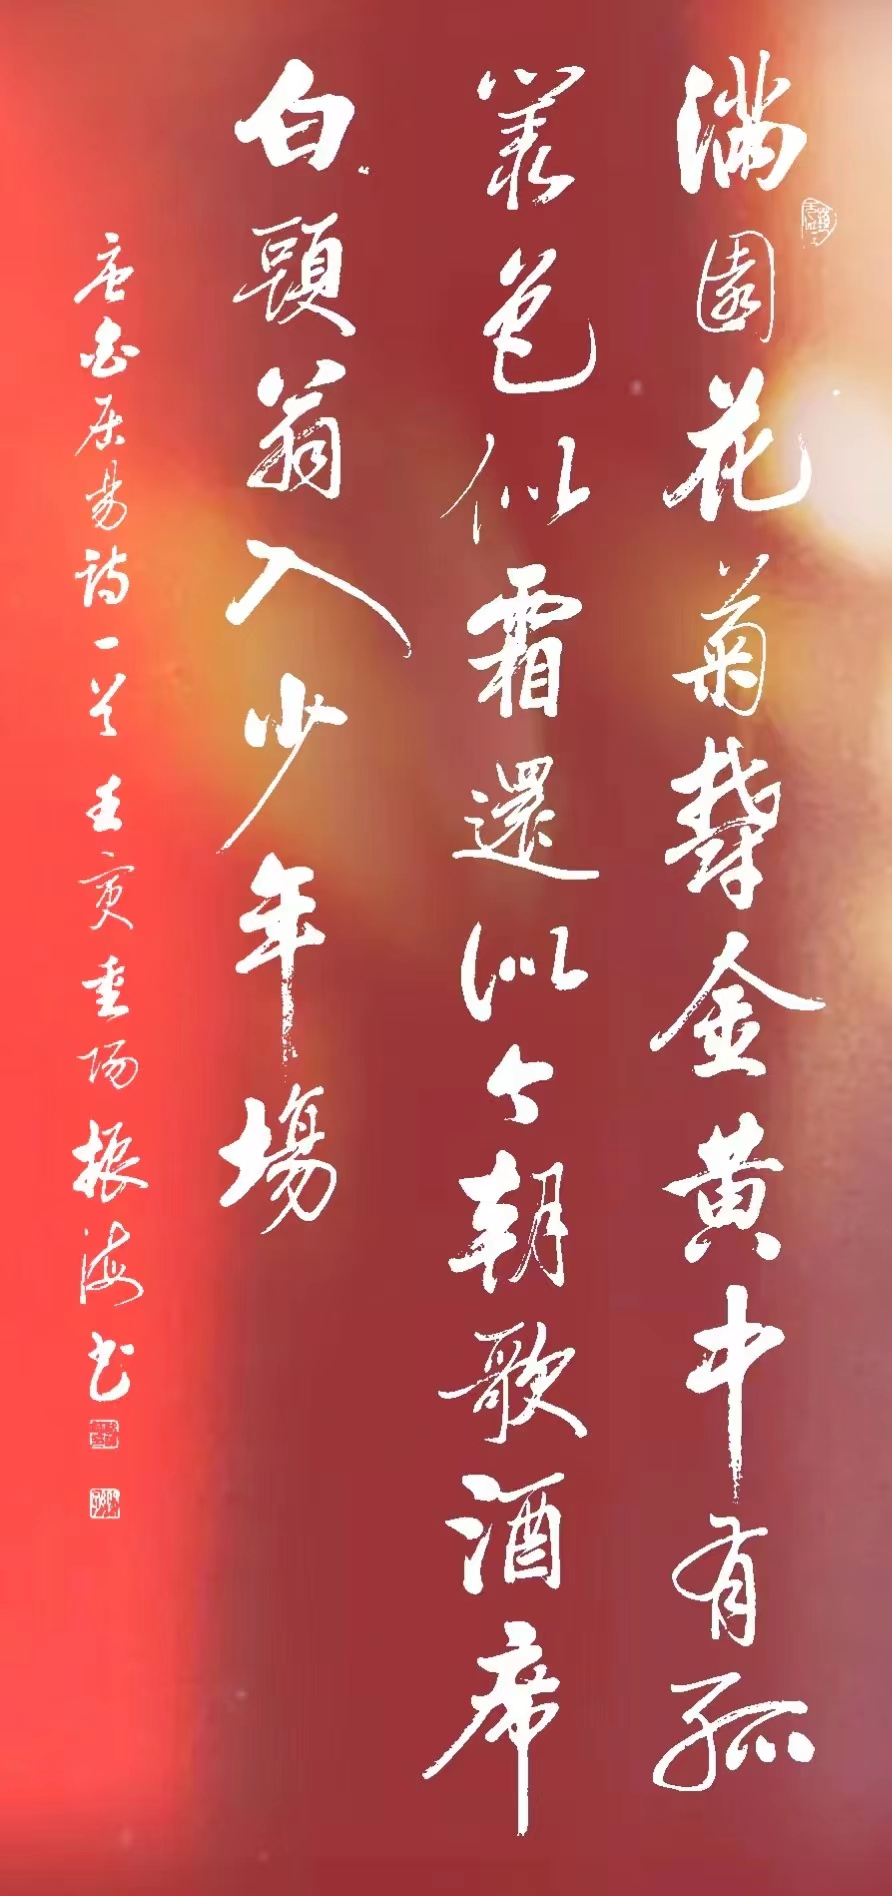 满園花菊欝金黄中有孤
叢色似霜還似今朝歌酒席
白頭翁入少年場
唐白居易诗一首壬寅重阳振海书